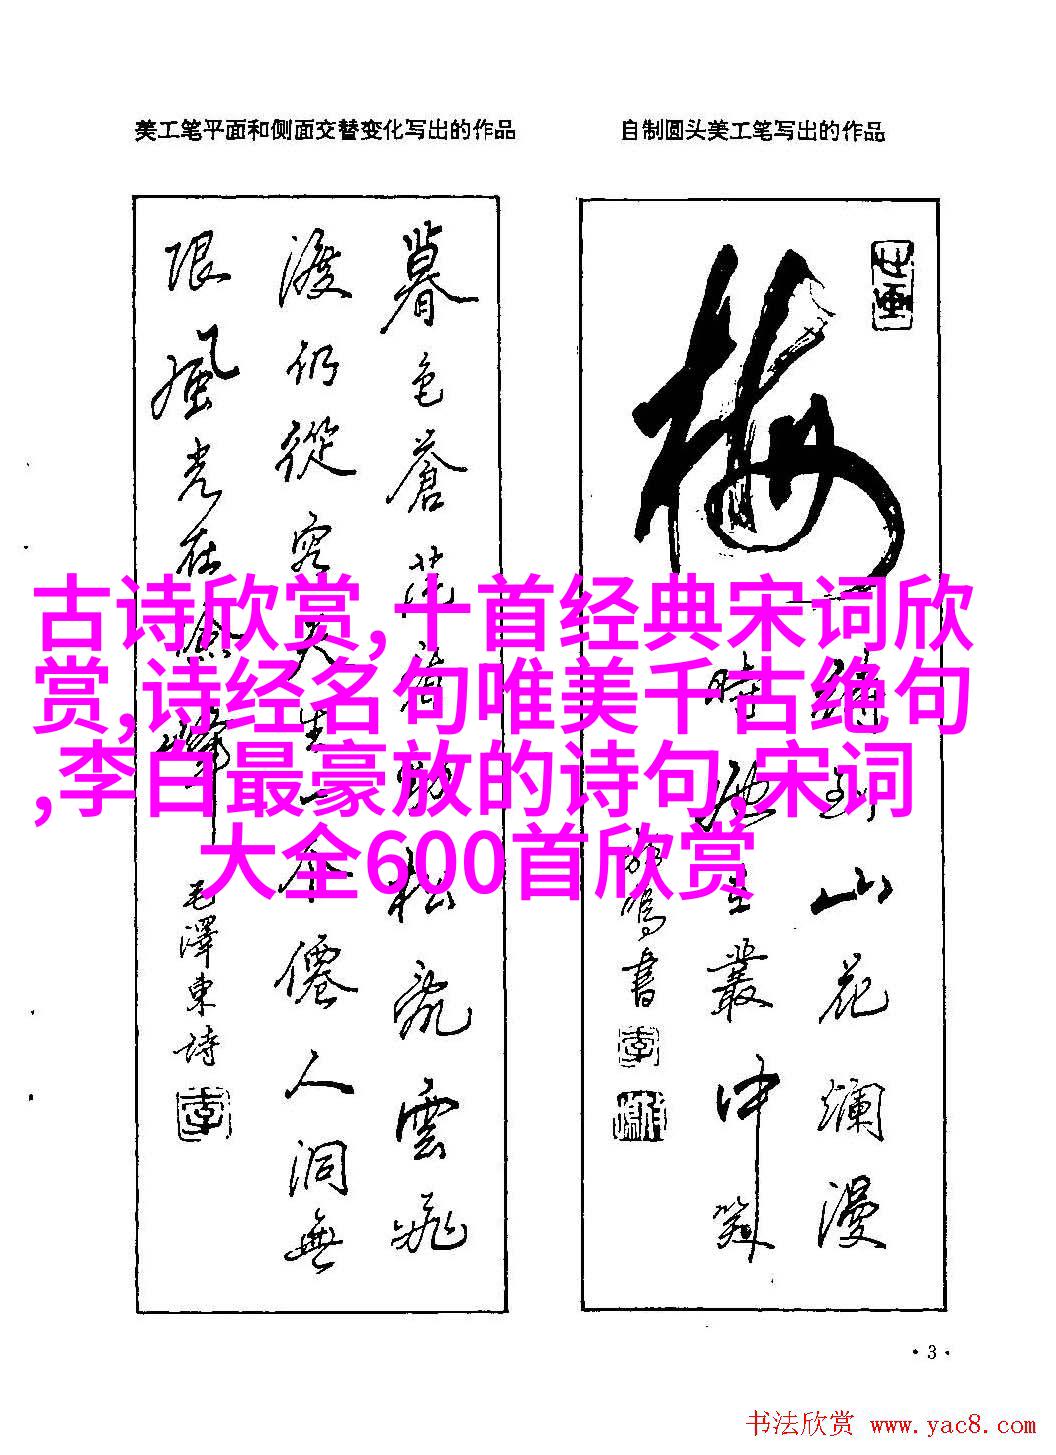 美工笔平面和侧面交替变化写出的作品
自制圆头美工笔写出的作品
暮色苍茫看劲松乱云飞
渡仍從容天生一个僊人洞無
限風光在險峰
毛澤東詩
梅
待到山花爛漫
時她在叢中笑
鳴書
古诗欣赏,十首经典宋词欣
赏,诗经名句唯美千古绝句
,李白最豪放的诗句,宋词
大全600首欣赏
·3·
书法欣赏 www.yac8.com